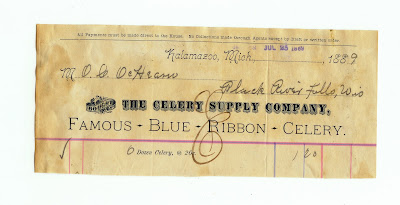 All Payments must be made direct to the House. No Deductions made through Agents except by Draft or written order.
Kalamazoo, Mich, JUL 25 1889 1889
M O. D.
Black River Falls, Wis
THE CELERY SUPPLY COMPANY,
FAMOUS - BLUE - RIBBON - CELERY.
6 Dozen Celery, @ 20c. 1 20